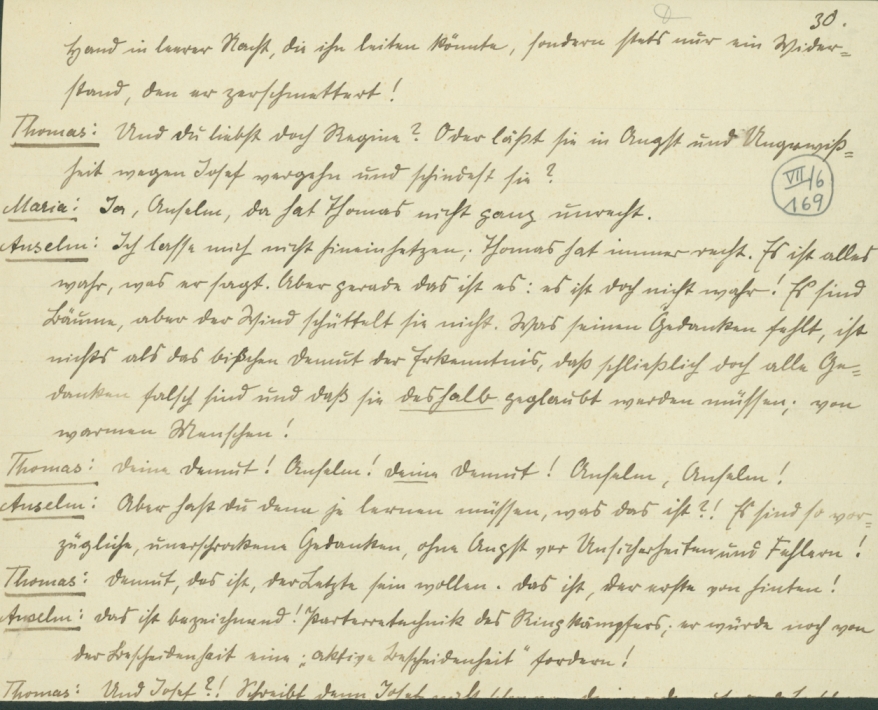 30.
Hand in leerer Nacht, die ihn leiten könnte, sondern stets nur ein Wider=
stand, den er zerschmettert!
Thomas: Und du liebst doch Regine? Oder läßt sie in Angst und Ungewiß=
heit wegen Josef vergehn und schindest sie?
VII/6
169
Maria: Ja, Anselm, da hat Thomas nicht ganz unrecht.
Anselm: Ich lasse mich nicht hineinhetzen; Thomas hat immer recht. Es ist alles
wahr, was er sagt. Aber gerade das ist es: es ist doch nicht wahr! Es sind
Bäume, aber der Wind schüttelt sie nicht. Was seinen Gedanken fehlt, ist
nichts als das bißchen Demut der Erkenntnis, daß schließlich doch alle Ge=
danken falsch sind und daß sie deshalb geglaubt werden müssen; von
warmen Menschen!
Thomas: Deine Demut! Anselm! deine Demut! Anselm, Anselm!
Anselm: Aber hast du denn je lernen müssen, was das ist?! Es sind so vor=
zügliche, unerschrockene Gedanken, ohne Angst vor Unsicherheiten und Fehlern!
Thomas: Demut, das ist, der Letzte sein wollen. Das ist, der erste von hinten!
Anselm: Das ist bezeichnend! Parterretechnik des Ringkämpfers; er würde noch von
der Bescheidenheit eine „aktive Bescheidenheit" fordern!
Thomas: Und Josef?! Schreibt denn Josef